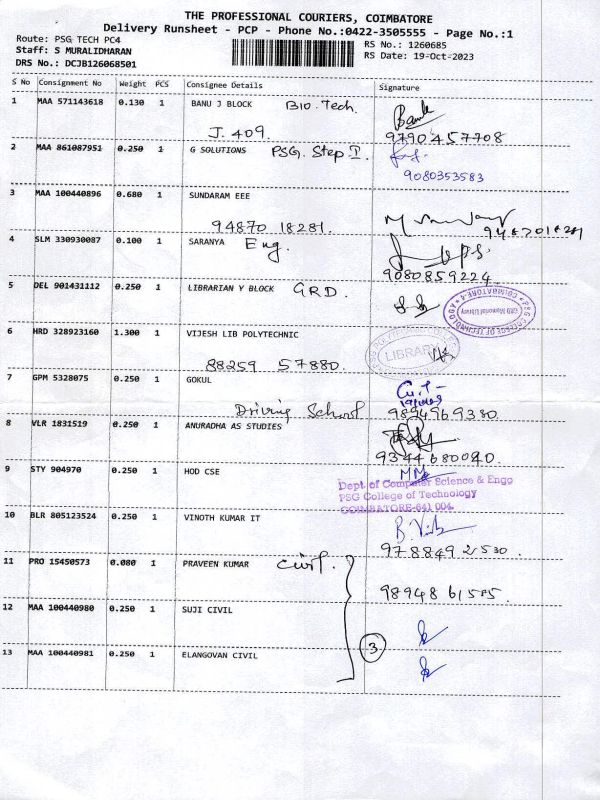 THE PROFESSIONAL COURIERS, COIMBATORE
Delivery Runsheet - PCP - Phone No.:0422-3505555 - Page No.:1
Route: PSG TECH PC4
RS No.: 1260685
Staff: S MURALIDHARAN
RS Date: 19-Oct-2023
DRS No.: DCJB126068501
S No Consignment No Weight PCS Consignee Details Signature
1 MAA 571143618 0.130 1 BANU J BLOCK Bio.Tech.
J. 409. 9790457708
2 MAA 861087951 0.250 1 G SOLUTIONS PSG. Step I.
9080353583
3 MAA 100440896 0.680 1 SUNDARAM EEE
94870 18281.
4 SLM 330930087 0.100 1 SARANYA Eng.
9080859224
5 DEL 901431112 0.250 1 LIBRARIAN Y BLOCK GRD.
PSG COLLEGE OF TECHNOLOGY
GRD Memorial Library
COIMBATORE-4
6 HRD 328923160 1.300 1 VIJESH LIB POLYTECHNIC
88259 57880.
LIBRARY
7 GPM 5328075 0.250 1 GOKUL
Driving School 9894969380
8 VLR 1831519 0.250 1 ANURADHA AS STUDIES
9344680040.
9 STY 904970 0.250 1 HOD CSE
Dept. of Computer Science & Engg
PSG College of Technology
COIMBATORE-641 004.
10 BLR 805123524 0.250 1 VINOTH KUMAR IT
9788492530
11 PRO 15450573 0.080 1 PRAVEEN KUMAR Civil.
12 MAA 100440980 0.250 1 SUJI CIVIL
3
13 MAA 100440981 0.250 1 ELANGOVAN CIVIL